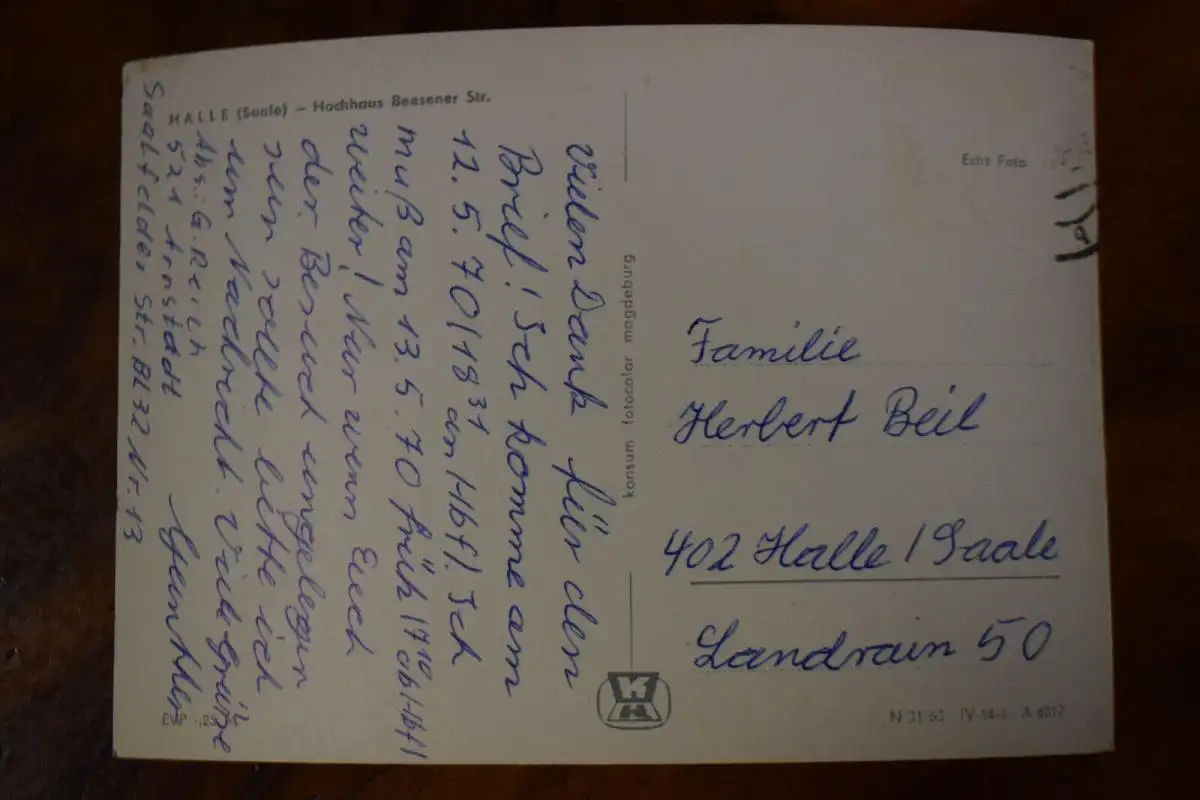 HALLE (Saale) – Hochhaus Beesener Str.
Vielen Dank für den
Brief! Ich komme am
12. 5. 70/18³¹ an Hbf! Ich
muß am 13. 5. 70 früh/7¹⁰ ab Hbf!
weiter! Nur wenn Euch
der Besuch ungelegen
sein sollte bitte ich
um Nachricht. Viele Grüße
Günther
Abs.: G. Reich
521 Arnstadt
Saalfelder Str. Bl 32 Nr. 13
konsum fotocolor magdeburg
Echt Foto
Familie
Herbert Beil
402 Halle/Saale
Landrain 50
EVP -,25 M
N 31 63 IV-14-